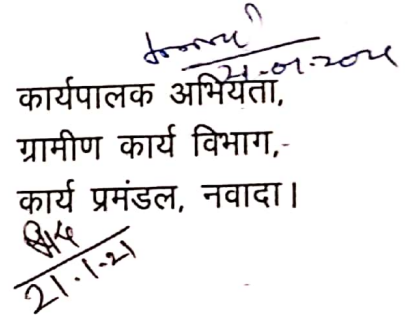 21-01-2021
कार्यपालक अभियंता,
ग्रामीण कार्य विभाग,-
कार्य प्रमंडल, नवादा।
21.1.21